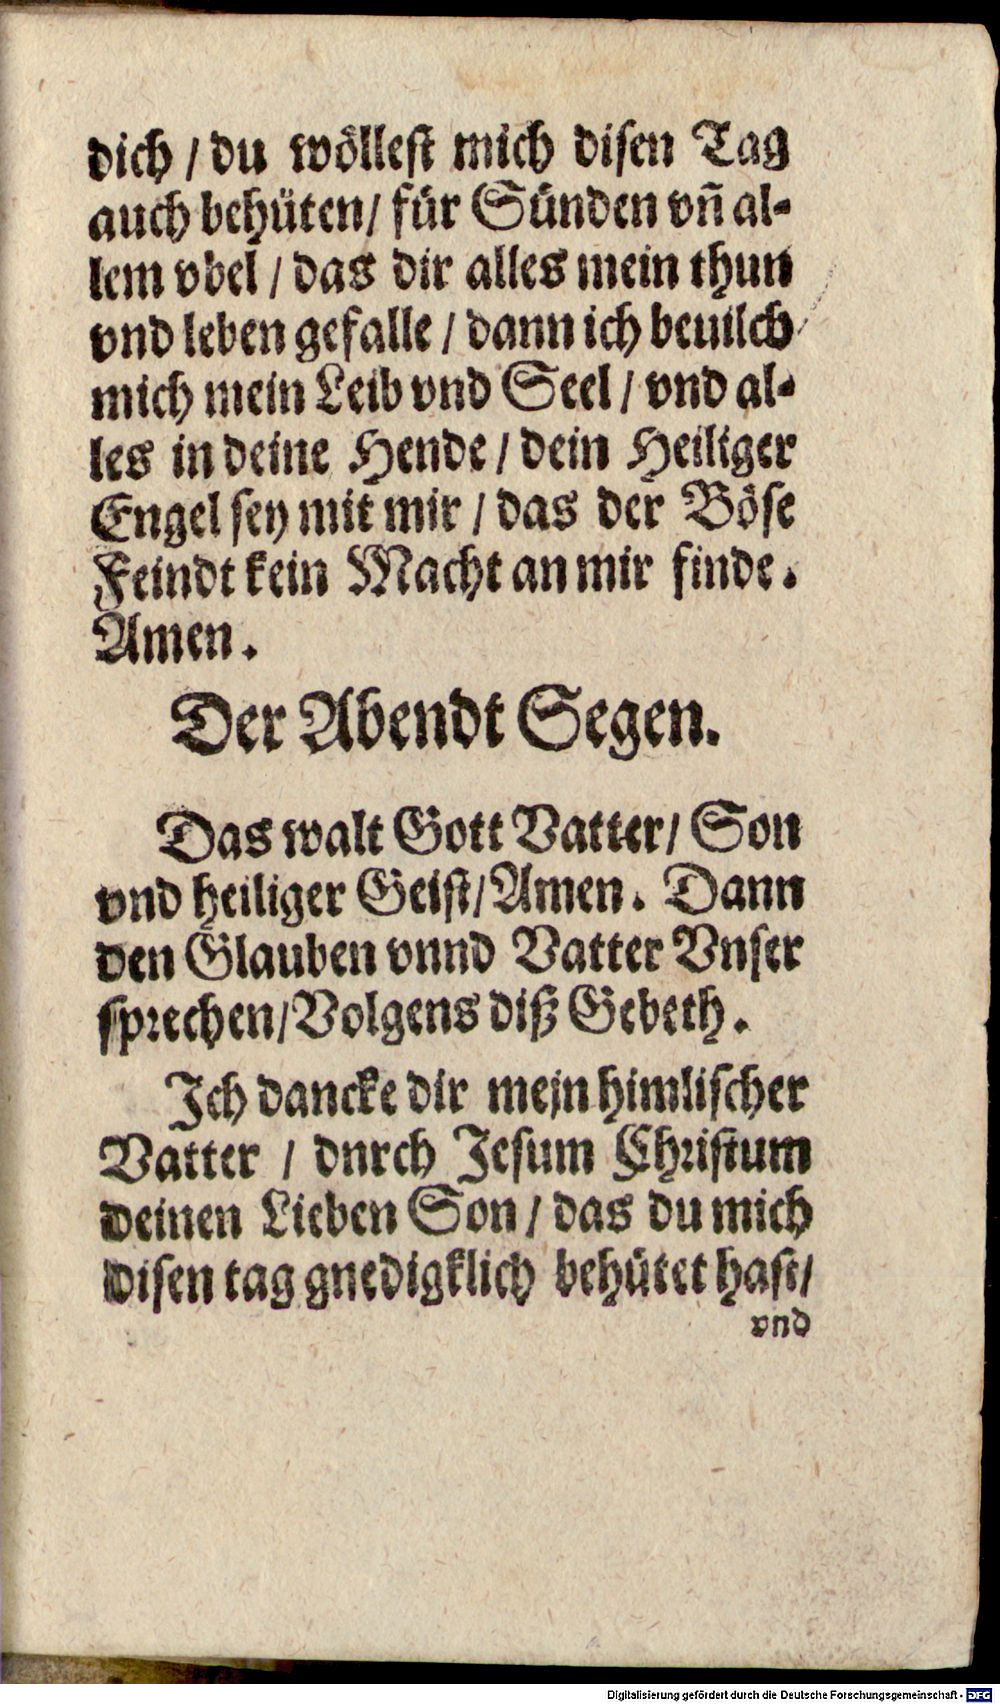 dich / du wöllest mich disen Tag
auch behüten / für Sünden vñ al-
lem vbel / das dir alles mein thun
vnd leben gefalle / dann ich beuilch
mich mein Leib vnd Seel / vnd al-
les in deine Hende / dein Heiliger
Engel sey mit mir / das der Böse
Feindt kein Macht an mir finde.
Amen.
Der Abendt Segen.
Das walt Gott Vatter / Son
vnd heiliger Geist / Amen. Dann
den Glauben vnnd Vatter Vnser
sprechen / Volgens diß Gebeth.
Ich dancke dir mein himlischer
Vatter / dnrch Jesum Christum
deinen Lieben Son / das du mich
disen tag gnedigklich behütet hast /
vnd
Digitalisierung gefördert durch die Deutsche Forschungsgemeinschaft - DFG